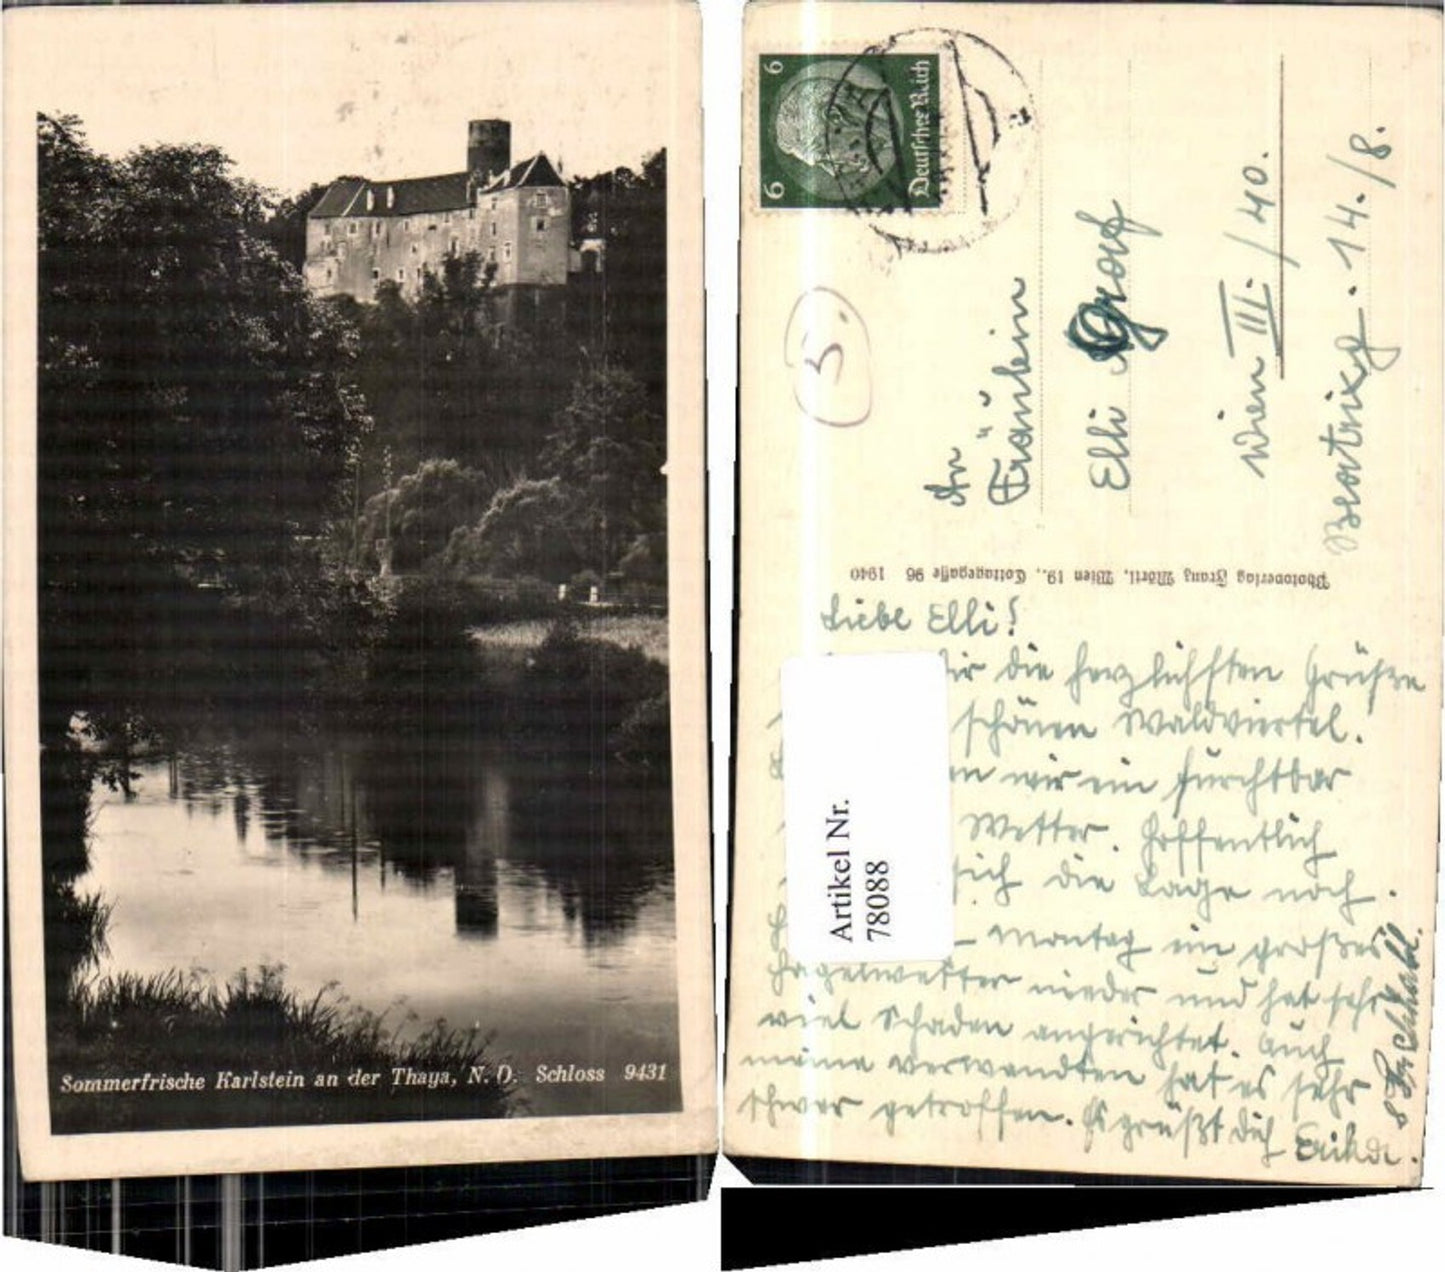 Sommerfrische Karlstein an der Thaya, N. Ö. Schloss 9431
6
6
Deutsches Reich
5.
An
Fräulein
Elli Graf
Wien III. / 40.
Beatrixg. 14. / 8.
Photoverlag Franz Mörtl, Wien 19., Cottagegasse 96 1940
Artikel Nr.
78088
Liebe Elli!
dir die herzlichsten Grüße
schönen Waldviertel.
wir ein furchtbar
Wetter. Hoffentlich
sich die Lage noch.
Montag ein großes
Hagelwetter nieder und hat sehr
viel Schaden angerichtet. Auch
meine Verwandten hat es sehr
schwer getroffen. Es grüßt dich Erika.